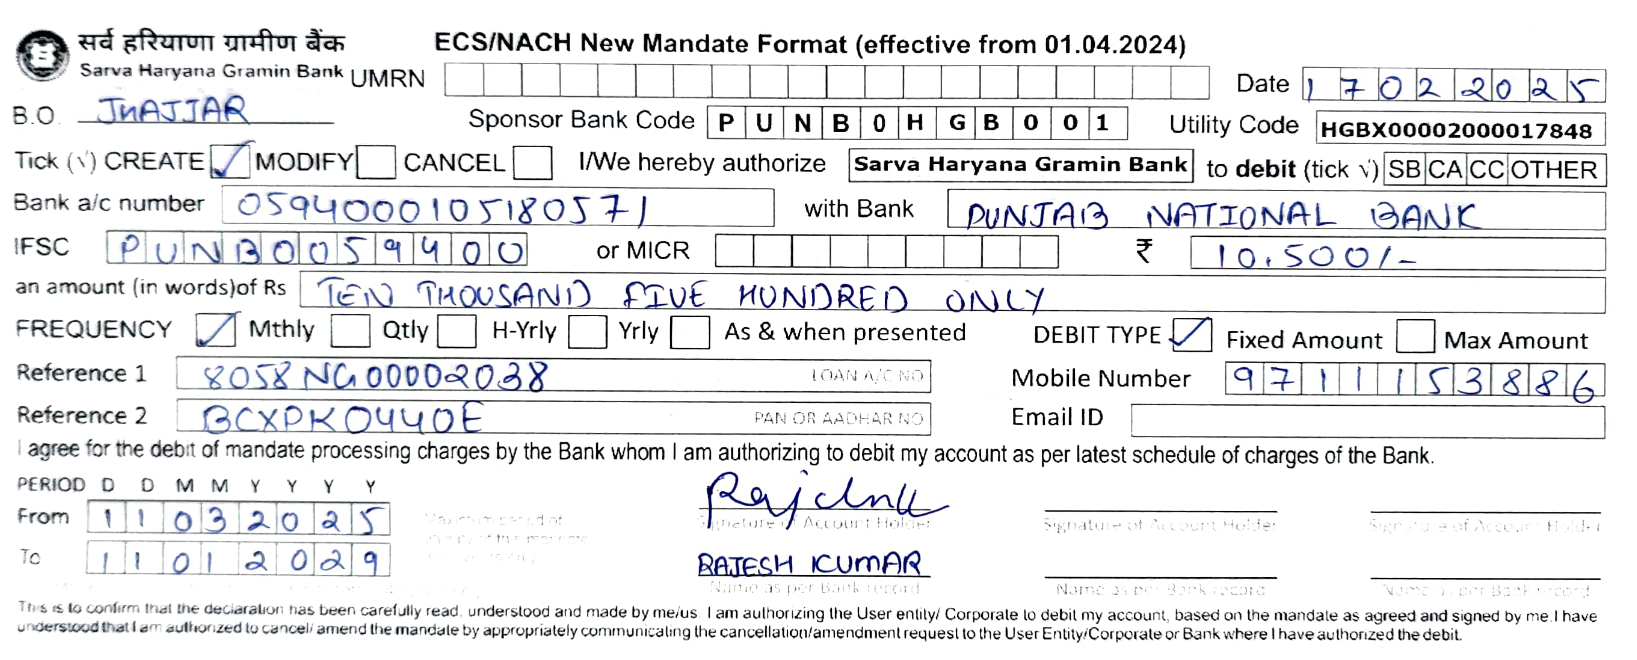 सर्व हरियाणा ग्रामीण बैंक
Sarva Haryana Gramin Bank
ECS/NACH New Mandate Format (effective from 01.04.2024)
UMRN Date 17022025
B.O. JHAJJAR Sponsor Bank Code PUNB0HGB001 Utility Code HGBX00002000017848
Tick (√) CREATE ✓ MODIFY CANCEL I/We hereby authorize Sarva Haryana Gramin Bank to debit (tick √) SB CA CC OTHER
Bank a/c number 0594000105180571 with Bank PUNJAB NATIONAL BANK
IFSC PUNB0059400 or MICR ₹ 10,500/-
an amount (in words)of Rs TEN THOUSAND FIVE HUNDRED ONLY
FREQUENCY ✓ Mthly Qtly H-Yrly Yrly As & when presented DEBIT TYPE ✓ Fixed Amount Max Amount
Reference 1 8058NG00002038 LOAN A/C NO Mobile Number 9711153886
Reference 2 BCXPK0440E PAN OR AADHAR NO Email ID
I agree for the debit of mandate processing charges by the Bank whom I am authorizing to debit my account as per latest schedule of charges of the Bank.
PERIOD D D M M Y Y Y Y
From 11032025 Signature of Account Holder Signature of Account Holder Signature of Account Holder
To 11012029 RAJESH KUMAR
Name as per Bank record Name as per Bank record Name as per Bank record
This is to confirm that the declaration has been carefully read, understood and made by me/us I am authorizing the User entity/ Corporate to debit my account, based on the mandate as agreed and signed by me.I have
understood that I am authorized to cancel/ amend the mandate by appropriately communicating the cancellation/amendment request to the User Entity/Corporate or Bank where I have authorized the debit.